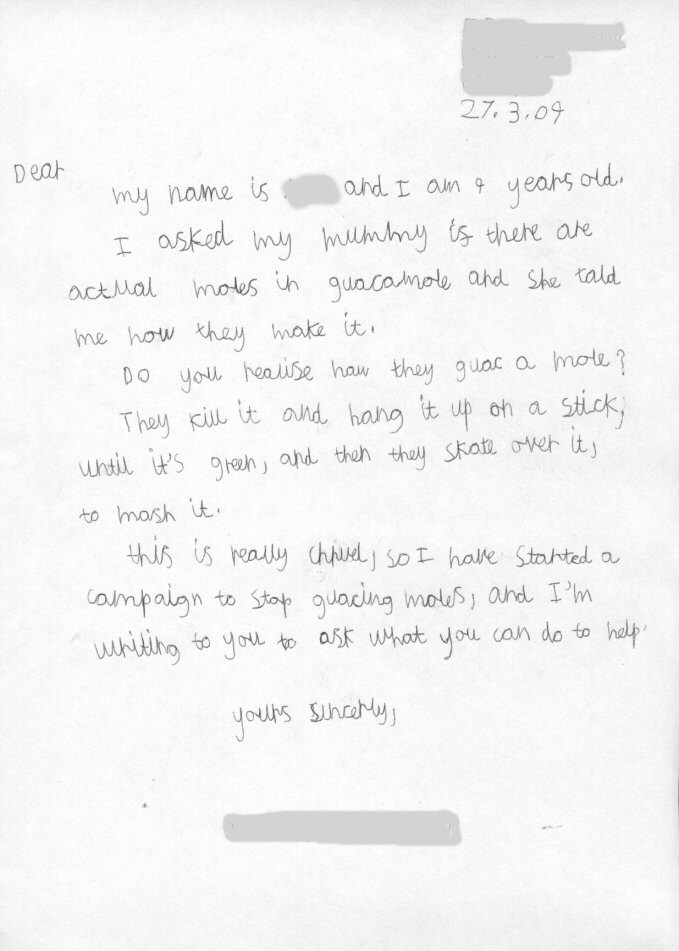 27.3.09
Dear
my name is and I am 9 years old.
I asked my mummy if there are
actual moles in guacamole and she told
me how they make it.
Do you realise how they guac a mole?
They kill it and hang it up on a stick,
until it's green, and then they skate over it,
to mash it.
this is really chruel, so I have started a
campaign to stop guacing moles, and I'm
writing to you to ask what you can do to help.
yours sincerly,